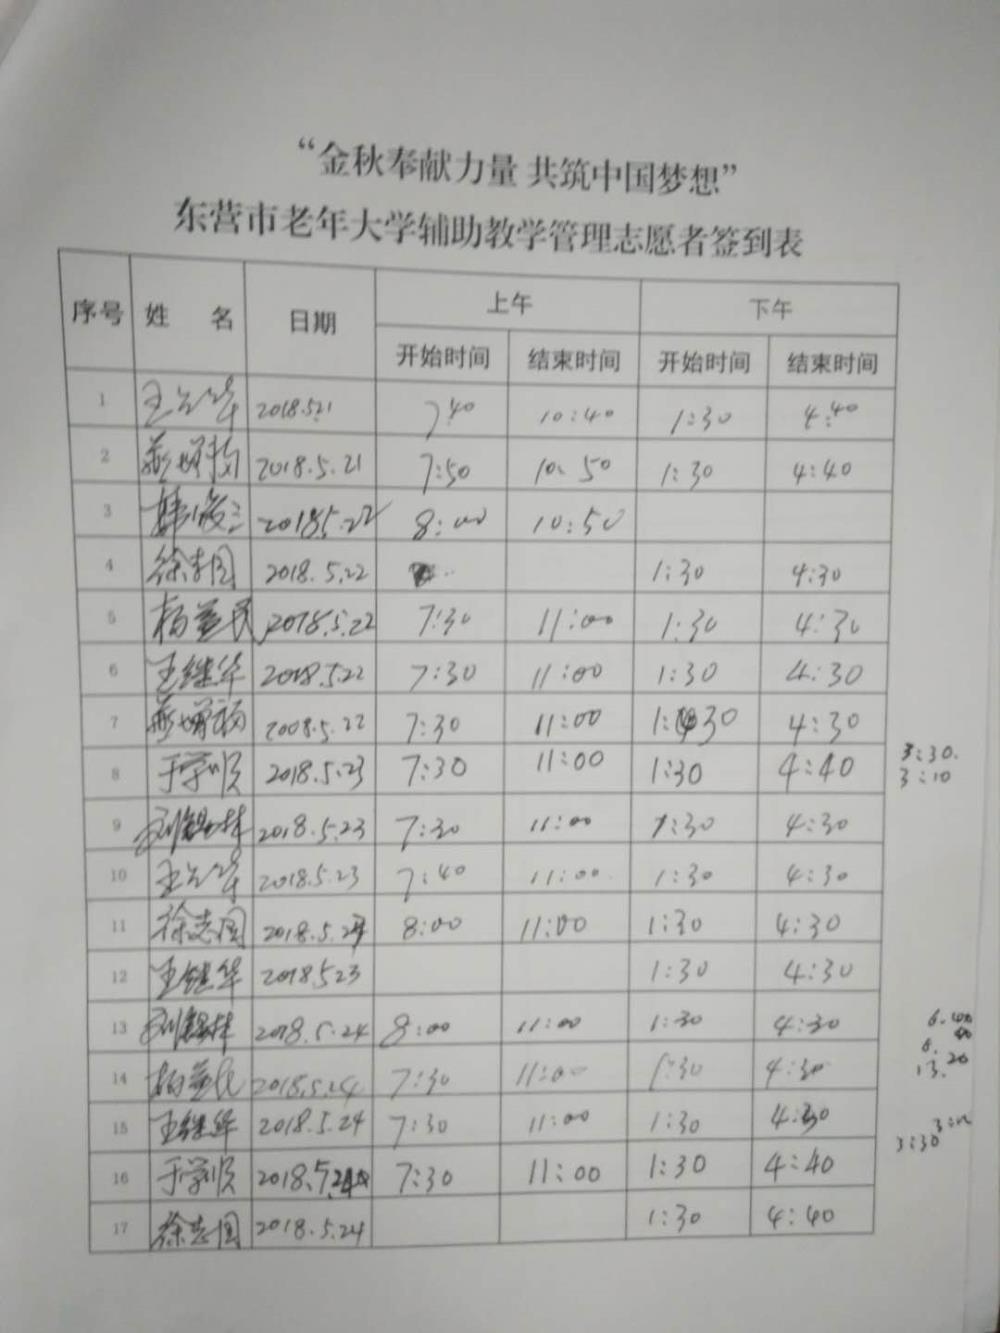 “金秋奉献力量 共筑中国梦想”
东营市老年大学辅助教学管理志愿者签到表
序号 姓 名 日期 上午 下午
开始时间 结束时间 开始时间 结束时间
1 2018.5.21 7:40 10:40 1:30 4:40
2 2018.5.21 7:50 10:50 1:30 4:40
3 2018.5.22 8:00 10:50
4 徐志国 2018.5.22 1:30 4:30
5 杨益民 2018.5.22 7:30 11:00 1:30 4:30
6 王继华 2018.5.22 7:30 11:00 1:30 4:30
7 2008.5.22 7:30 11:00 1:30 4:30
8 于学顺 2018.5.23 7:30 11:00 1:30 4:40 3:30.
3:10
9 2018.5.23 7:30 11:00 1:30 4:30
10 2018.5.23 7:40 11:00 1:30 4:30
11 徐志国 2018.5.24 8:00 11:00 1:30 4:30
12 王继华 2018.5.23 1:30 4:30
13 2018.5.24 8:00 11:00 1:30 4:30
14 杨益民 2018.5.24 7:30 11:00 1:30 4:30 13.20
15 王继华 2018.5.24 7:30 11:00 1:30 4:30
3:30
16 于学顺 2018.5.24 7:30 11:00 1:30 4:40
17 徐志国 2018.5.24 1:30 4:40